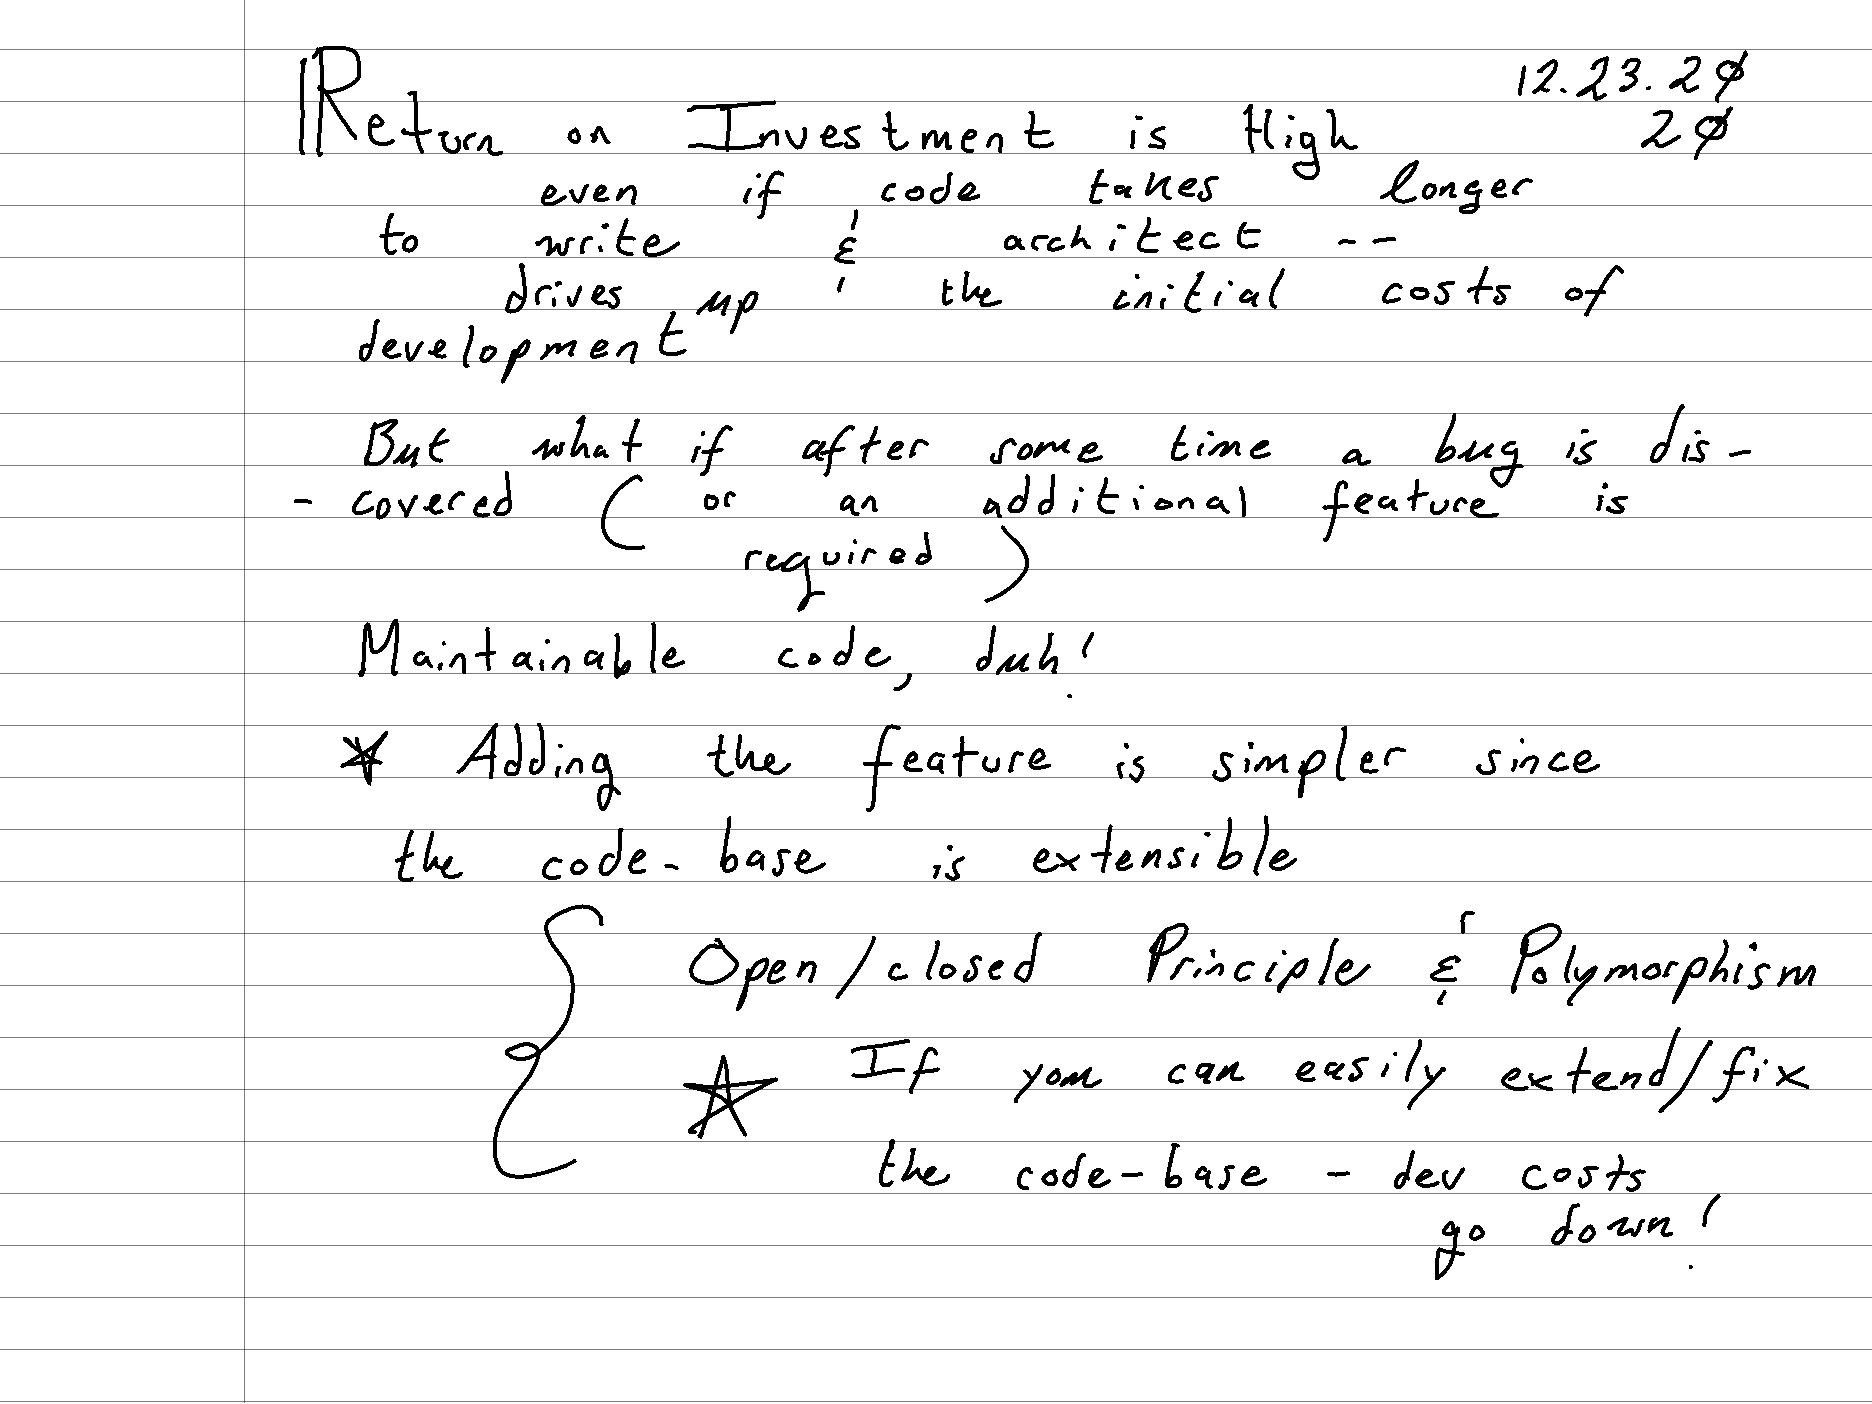 12.23.2Ø
Return on Investment is High 2Ø
even if code takes longer
to write & architect --
drives up the initial costs of
development
But what if after some time a bug is dis-
- covered ( or an additional feature is
required )
Maintainable code, duh!
* Adding the feature is simpler since
the code-base is extensible
{ Open/closed Principle & Polymorphism
☆ If you can easily extend/fix
the code-base - dev costs
go down!